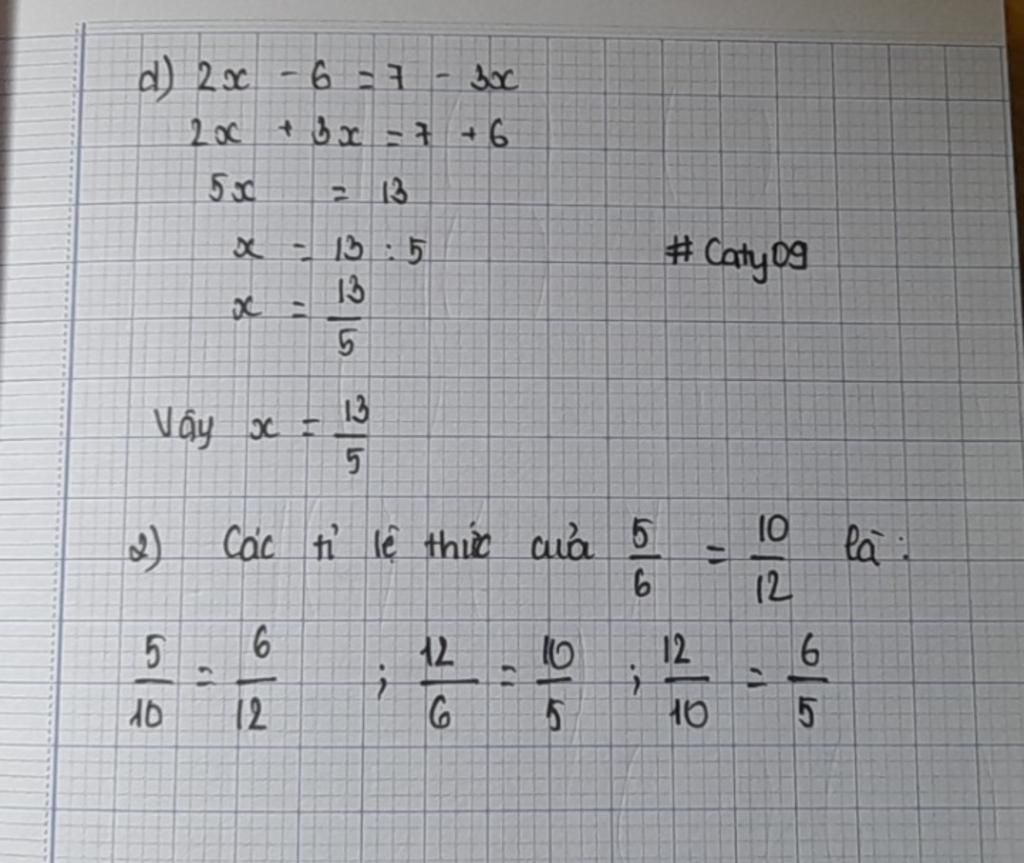 d) 2x - 6 = 7 - 3x
2x + 3x = 7 + 6
5x = 13
x = 13 : 5
# Caty09
x = 13/5
Vậy x = 13/5
2) Các tỉ lệ thức của 5/6 = 10/12 là :
5/10 = 6/12 ; 12/6 = 10/5 ; 12/10 = 6/5